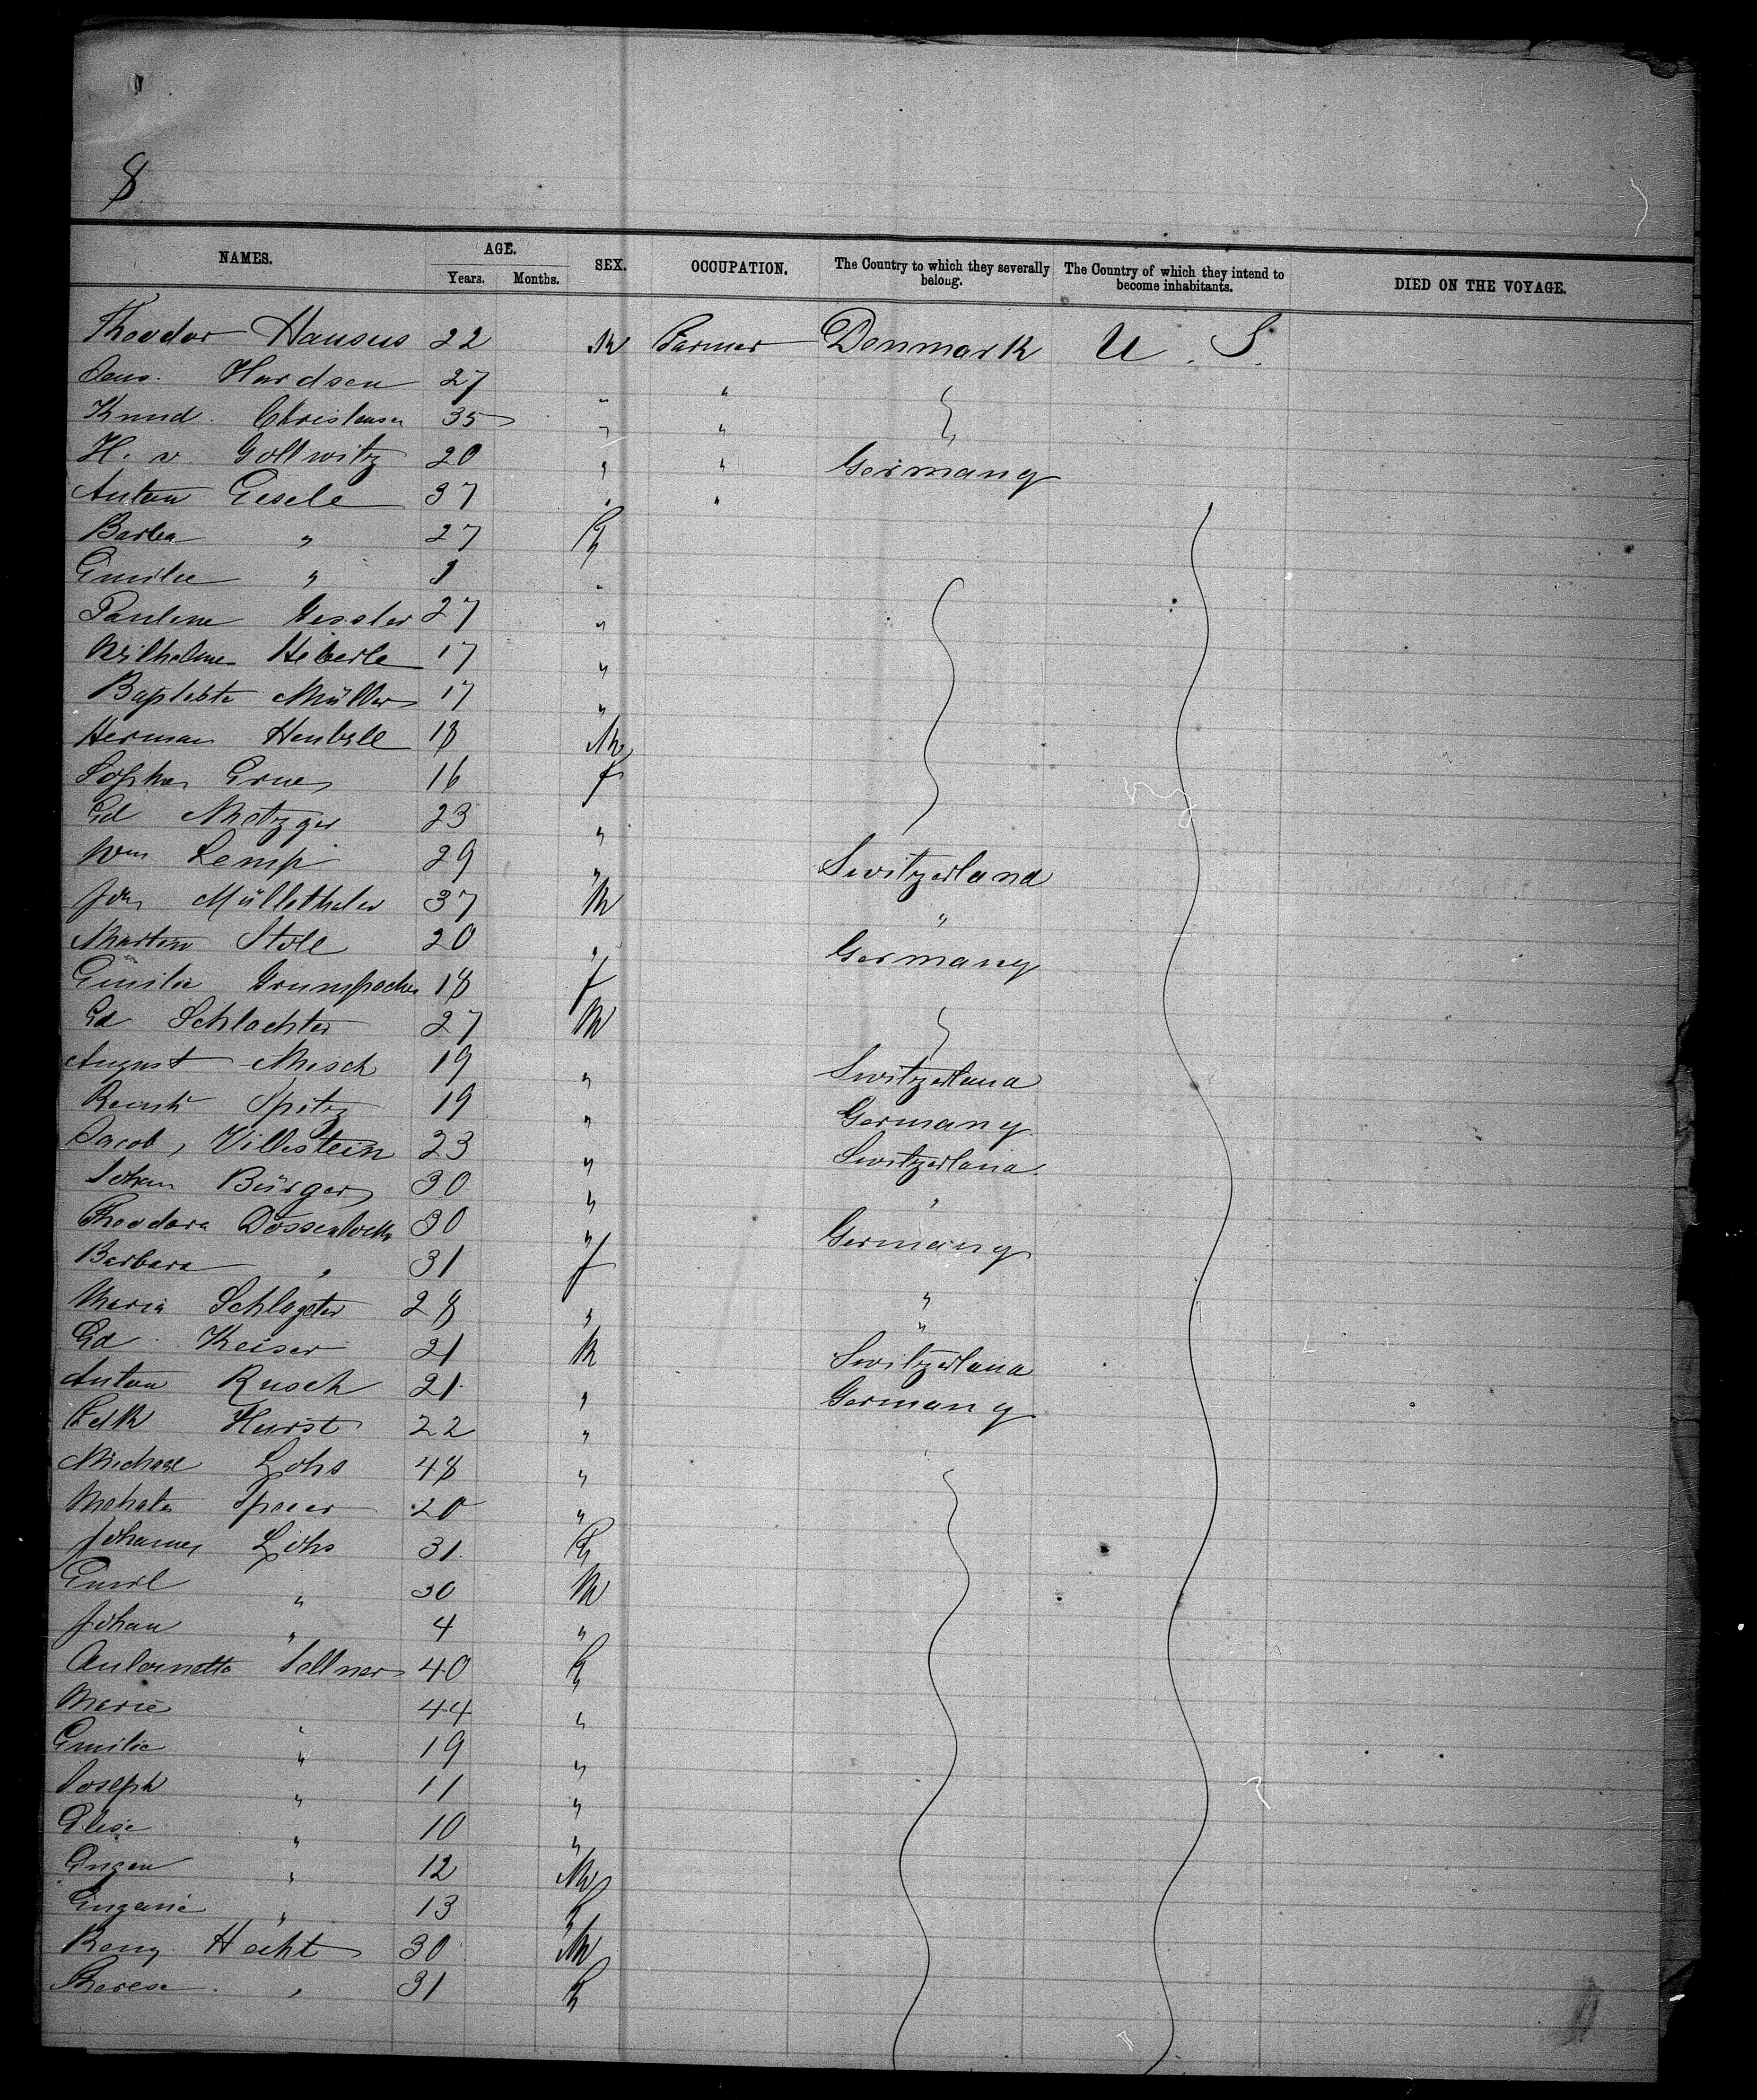 8
NAMES. AGE. Years. Months. SEX. OCCUPATION. The Country to which they severally belong. The Country of which they intend to become inhabitants. DIED ON THE VOYAGE.
Theodor Hansus 22 M Farmer Denmark U. S.
Jens. Hardsen 27 " "
Knud. Christensen 35 " "
H. v. Gollwitz 20 " " Germany
Anton Eisele 37 " "
Barba " 27 F
Emilie " 1 "
Pauline Gessler 27 "
Wilhelme Heberle 17 "
Baptista Müller 17 "
Herman Heuberle 18 M
Sophie 16 f
Ed Metzger 23 "
Wm Lemp 29 " Switzerland
Joh Müllethaler 37 M "
Martin Stoll 20 " Germany
Emilie 18 f
Ed Schlachter 27 M
August Mesch 19 " Switzerland
Spitz 19 " Germany
Jacob, Villestein 23 " Switzerland
Johan Bürger 30 " "
Theodora 30 " Germany
Barbara " 31 f
Maria Schlageter 28 " "
Ed. Keiser 21 M " Switzerland
Anton Rusch 21 " Germany
Fdk Hurst 22 "
Michael Lohs 48 "
20 "
Johannes Löhs 31 F
Emil " 30 M
Johan " 4 "
Antoinette Sellner 40 F
Marie " 44 "
Emilie " 19 "
Joseph " 11 "
Elise " 10 "
Eugen " 12 M
Eugenie " 13 F
Benj. Hecht 30 M
Therese " 31 F